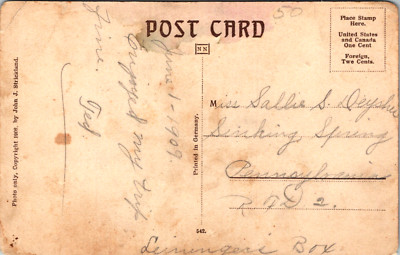 50
POST CARD
NN
Place Stamp
Here.
United States
and Canada
One Cent
Foreign,
Two Cents.
June 1 - 1909
Enjoyed my trip
fine.
Ted
Photo only, Copyright 1908, by John J. Strickland.
Printed in Germany.
Miss Sallie S.
Sinking Spring
Pennsylvania
R. F. D 2.
542.
Box